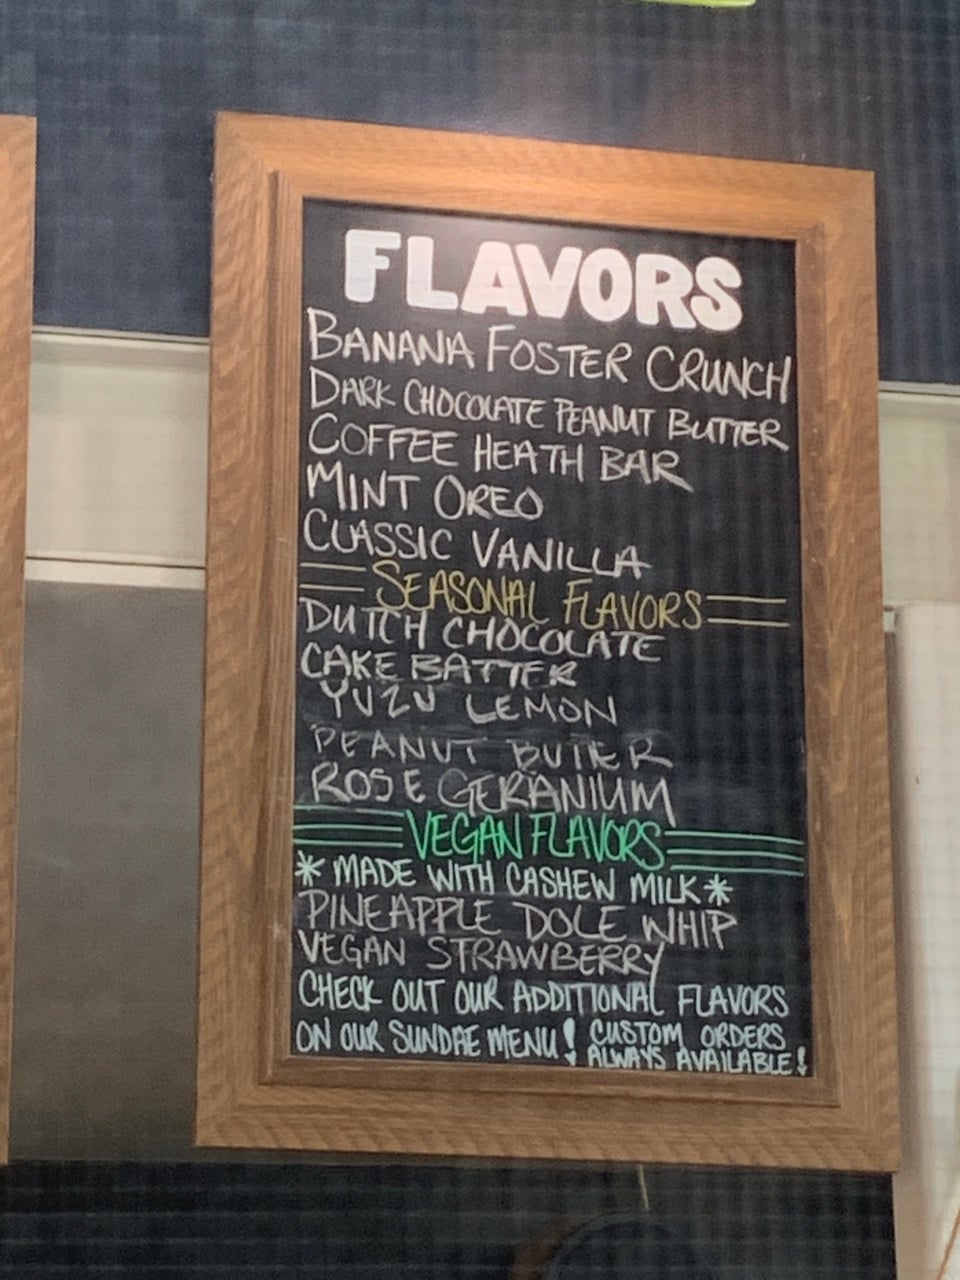 FLAVORS
BANANA FOSTER CRUNCH
DARK CHOCOLATE PEANUT BUTTER
COFFEE HEATH BAR
MINT OREO
CLASSIC VANILLA
SEASONAL FLAVORS
DUTCH CHOCOLATE
CAKE BATTER
YUZU LEMON
PEANUT BUTTER
ROSE GERANIUM
VEGAN FLAVORS
* MADE WITH CASHEW MILK *
PINEAPPLE DOLE WHIP
VEGAN STRAWBERRY
CHECK OUT OUR ADDITIONAL FLAVORS
ON OUR SUNDAE MENU!
CUSTOM ORDERS
ALWAYS AVAILABLE!